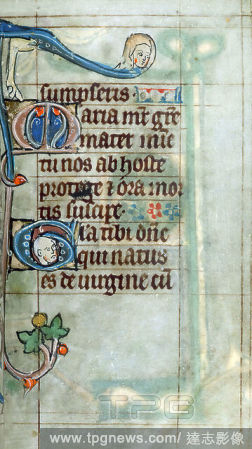 sumpseris.
Maria mr̄ gr̄e
mater mīe
tu nos ab hoste
protege ⁊ ora mor
tis suscipe.
Gl̄a tibi dn̄e
qui natus
es de uirgine cū
TPG
www.tpgnews.com/ 達志影像